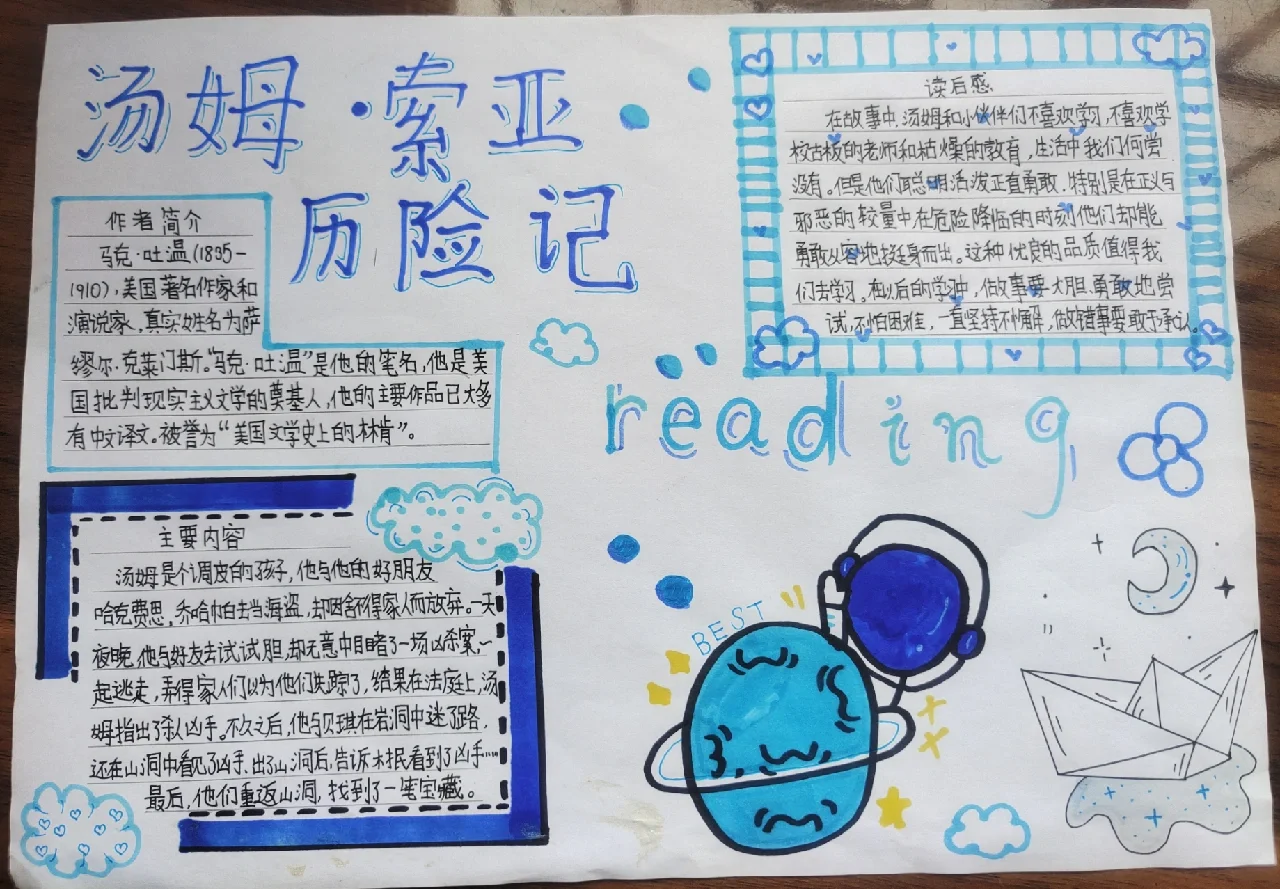 汤姆·索亚
历险记
作者简介
马克·吐温(1835-
1910),美国著名作家和
演说家,真实姓名为萨
缪尔·克莱门斯。“马克·吐温”是他的笔名,他是美
国批判现实主义文学的奠基人,他的主要作品已大多
有中文译文。被誉为“美国文学史上的林肯”。
读后感
在故事中,汤姆和小伙伴们不喜欢学习,不喜欢学
校古板的老师和枯燥的教育,生活中我们何尝
没有。但是他们聪明活泼正直勇敢,特别是在正义与
邪恶的较量中在危险降临的时刻他们却能
勇敢从容地挺身而出。这种优良的品质值得我
们去学习。在以后的学习中,做事要大胆勇敢地尝
试,不怕困难,一直坚持不懈,做错事要敢于承认。
reading
主要内容
汤姆是个调皮的孩子,他与他的好朋友
哈克费恩,乔哈帕去当海盗,却因舍不得家人而放弃。一天
夜晚,他与好友去试试胆,却无意中目睹了一场凶杀案,一
起逃走,弄得家人们以为他们失踪了,结果在法庭上,汤
姆指出了杀人凶手。不久之后,他与贝琪在岩洞中迷了路,
还在山洞中看见了凶手,出了山洞后,告诉木民看到了凶手……
最后,他们重返山洞,找到了一笔宝藏。
BEST